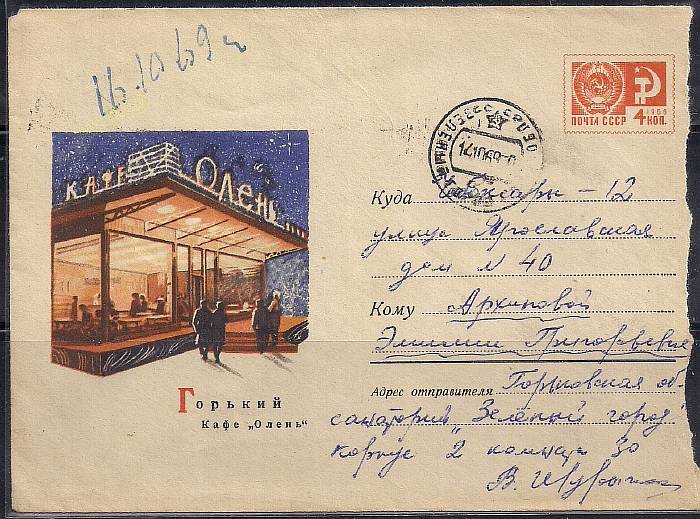 16.10.69 г
ПОЧТА СССР
1966
4 КОП.
КАФЕ ОЛЕНЬ
Куда Чебоксары - 12
улица Ярославская
дом N 40
Кому Архиповой
Эмилии Григорьевне
Адрес отправителя Горьковская об-
санаторий „Зелёный город"
корпус 2 комната 30
В.
Горький
Кафе „Олень“